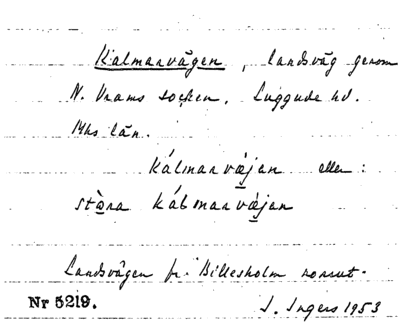 Kalmarvägen, landsväg genom
N. Vrams socken. Luggude hd.
Mhs län.
kálmarvæ̀jan eller:
stǫ̀ra kálmarvæ̀jan
Landsvägen fr. Billesholm norrut.
Nr 5219. I. Ingers 1953